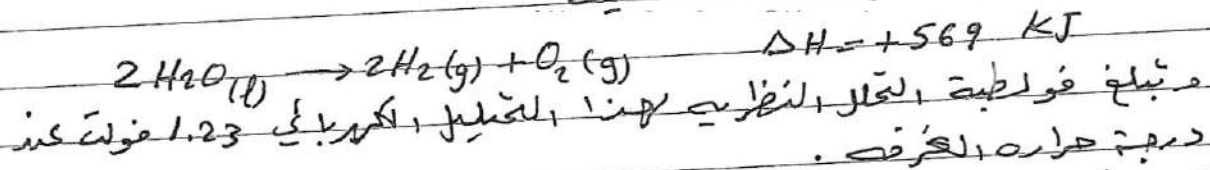 2H2O(l) → 2H2(g) + O2(g) ΔH = +569 KJ
و تبلغ فولطية التحلل النظريه لهذا التحليل الكهربائي 1.23 فولت عند
درجة حراره الغرفه .